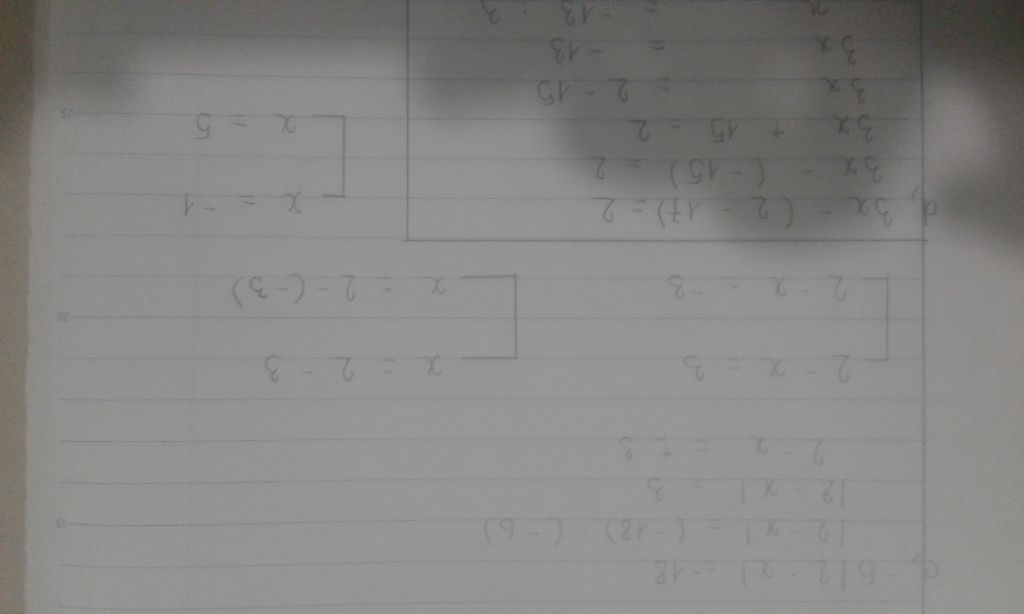 c, -6|2 - x| = -18
|2 - x| = (-18) : (-6)
|2 - x| = 3
2 - x = ± 3
2 - x = 3
x = 2 - 3
2 - x = -3
x = 2 - (-3)
x = -1
x = 5
d, 3x - (2 - 17) = 2
3x - (-15) = 2
3x + 15 = 2
3x = 2 - 15
3x = -13
x = -13 : 3
15
20
25